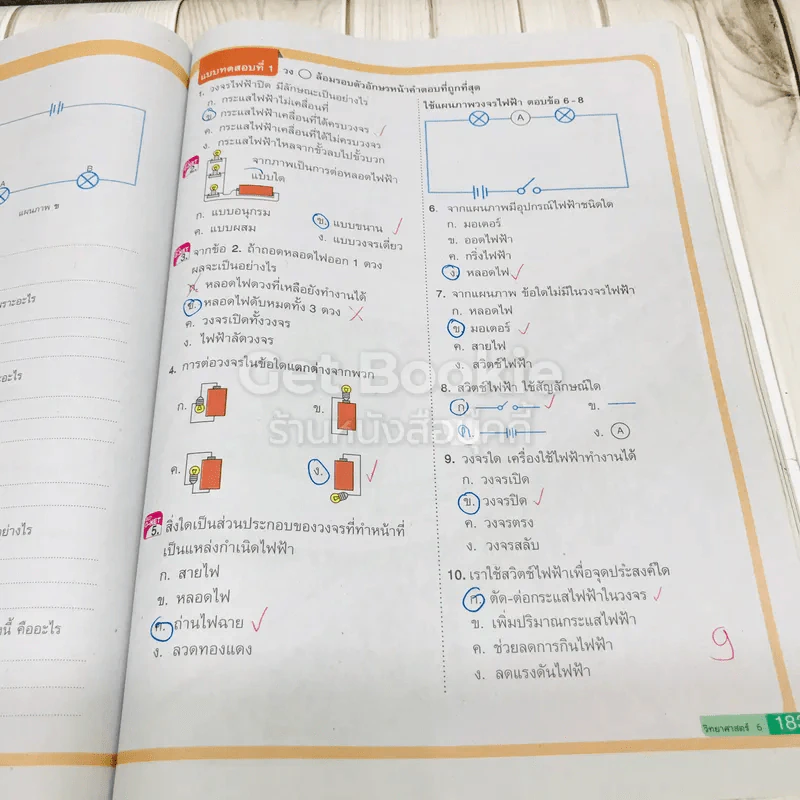 แบบทดสอบที่ 1 วง ◯ ล้อมรอบตัวอักษรหน้าคำตอบที่ถูกที่สุด
1. วงจรไฟฟ้าปิด มีลักษณะเป็นอย่างไร
ก. กระแสไฟฟ้าไม่เคลื่อนที่
ข. กระแสไฟฟ้าเคลื่อนที่ได้ครบวงจร
ค. กระแสไฟฟ้าเคลื่อนที่ได้ไม่ครบวงจร
ง. กระแสไฟฟ้าไหลจากขั้วลบไปขั้วบวก
2. จากภาพเป็นการต่อหลอดไฟฟ้า
แบบใด
ก. แบบอนุกรม
ข. แบบขนาน
ค. แบบผสม
ง. แบบวงจรเดี่ยว
3. จากข้อ 2. ถ้าถอดหลอดไฟออก 1 ดวง
ผลจะเป็นอย่างไร
ก. หลอดไฟดวงที่เหลือยังทำงานได้
ข. หลอดไฟดับหมดทั้ง 3 ดวง
ค. วงจรเปิดทั้งวงจร
ง. ไฟฟ้าลัดวงจร
4. การต่อวงจรในข้อใดแตกต่างจากพวก
ก.
ข.
ค.
ง.
5. สิ่งใดเป็นส่วนประกอบของวงจรที่ทำหน้าที่
เป็นแหล่งกำเนิดไฟฟ้า
ก. สายไฟ
ข. หลอดไฟ
ค. ถ่านไฟฉาย
ง. ลวดทองแดง
ใช้แผนภาพวงจรไฟฟ้า ตอบข้อ 6 - 8
A
6. จากแผนภาพมีอุปกรณ์ไฟฟ้าชนิดใด
ก. มอเตอร์
ข. ออดไฟฟ้า
ค. กริ่งไฟฟ้า
ง. หลอดไฟ
7. จากแผนภาพ ข้อใดไม่มีในวงจรไฟฟ้า
ก. หลอดไฟ
ข. มอเตอร์
ค. สายไฟ
ง. สวิตช์ไฟฟ้า
8. สวิตช์ไฟฟ้า ใช้สัญลักษณ์ใด
ก.
ข.
ค.
ง. A
9. วงจรใด เครื่องใช้ไฟฟ้าทำงานได้
ก. วงจรเปิด
ข. วงจรปิด
ค. วงจรตรง
ง. วงจรสลับ
10. เราใช้สวิตช์ไฟฟ้าเพื่อจุดประสงค์ใด
ก. ตัด-ต่อกระแสไฟฟ้าในวงจร
ข. เพิ่มปริมาณกระแสไฟฟ้า
ค. ช่วยลดการกินไฟฟ้า
ง. ลดแรงดันไฟฟ้า
9
วิทยาศาสตร์ 5
A
B
แผนภาพ ข
Get Bookie
ร้านหนังสือบุ๊คกี้